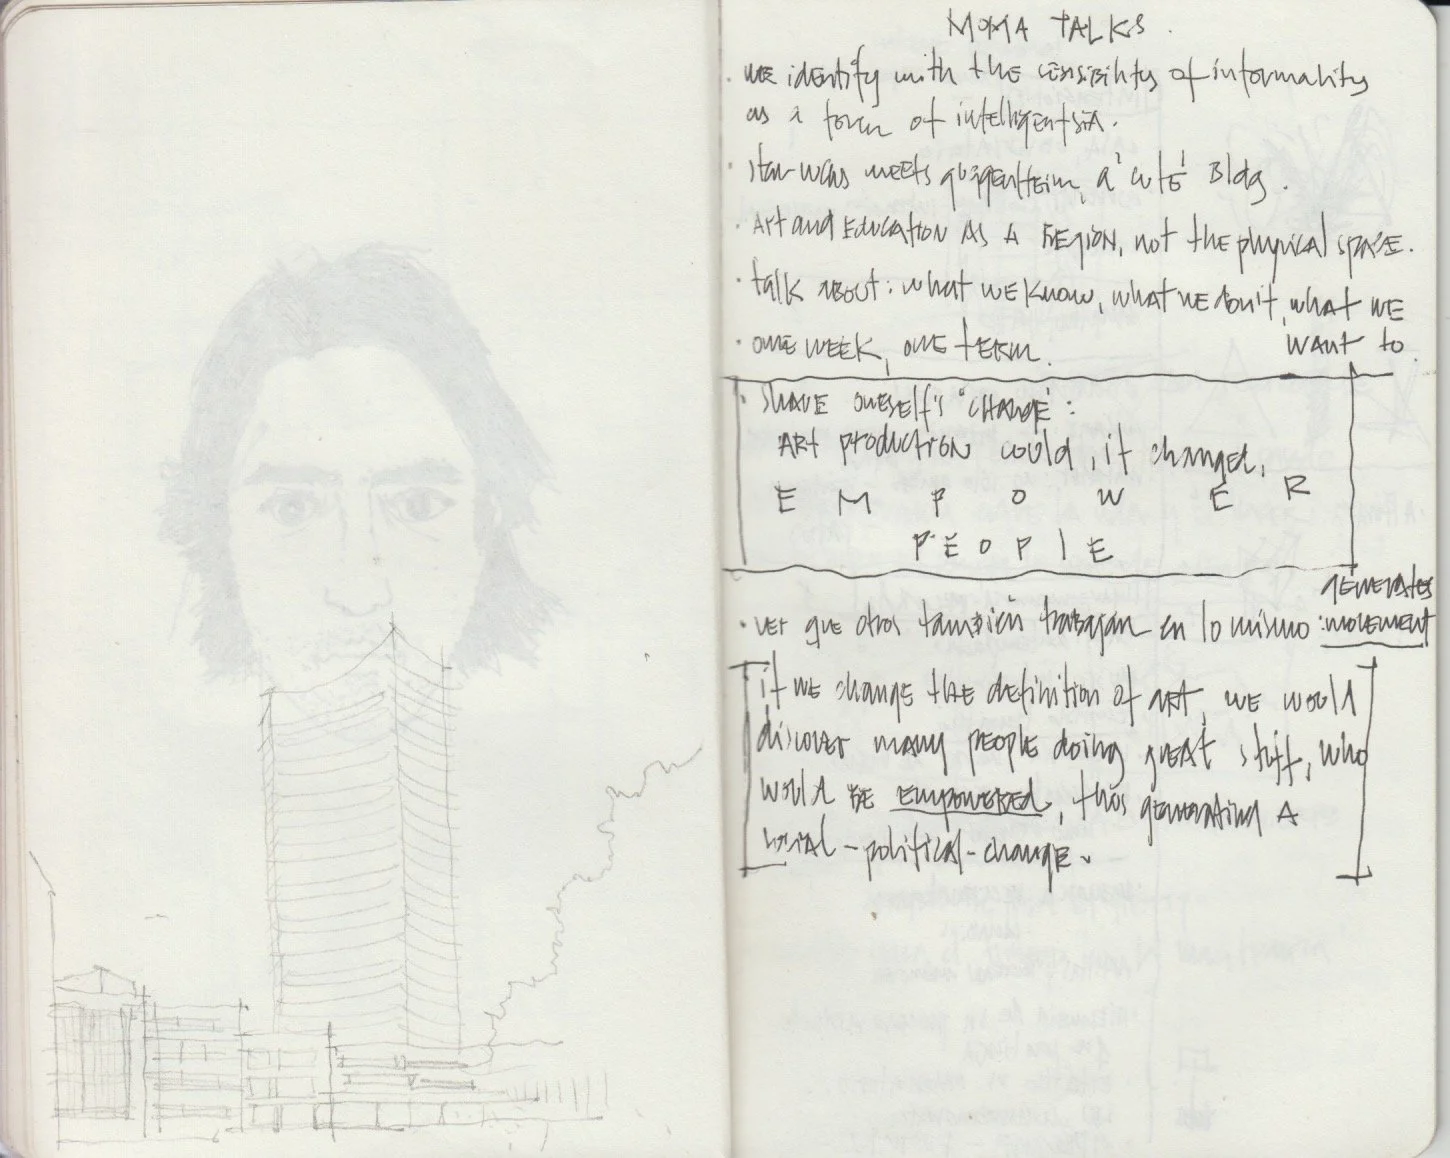 MOMA TALKS.
· WE identify with the sensibility of informality
as a form of intelligentsia.
· star-wars meets guggenheim, a "cute" Bldg.
· Art and EDUCATION AS A REGION, not the physical space.
· talk about: what we know, what we don't, what WE
want to
· one week, one term.
· SHAVE ONESELF'S "CHANGE":
ART production could, if changed,
E M P O W E R
P E O P l E
· ver que otros también trabajan en lo mismo: generates
movement
if WE change the definition of art, we would
discover many people doing great stuff, who
would be empowered, thus generating A
social-political-change.